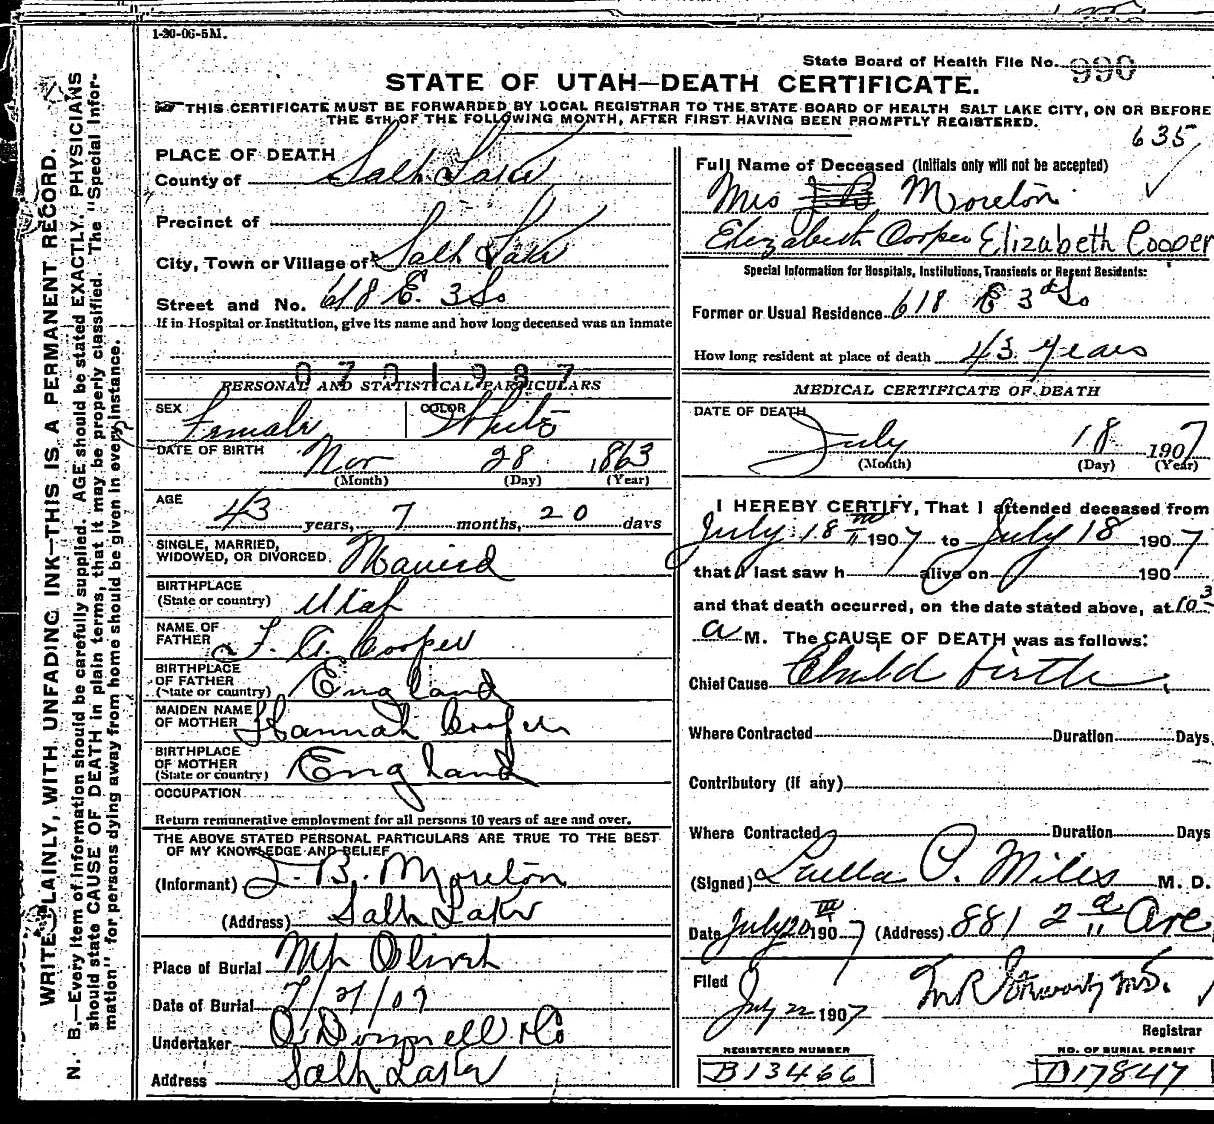 1-20-06-5M.
State Board of Health File No. 990
STATE OF UTAH—DEATH CERTIFICATE.
THIS CERTIFICATE MUST BE FORWARDED BY LOCAL REGISTRAR TO THE STATE BOARD OF HEALTH SALT LAKE CITY, ON OR BEFORE
THE 5TH OF THE FOLLOWING MONTH, AFTER FIRST HAVING BEEN PROMPTLY REGISTERED.
635
WRITE PLAINLY, WITH UNFADING INK—THIS IS A PERMANENT RECORD.
N. B.—Every item of information should be carefully supplied. AGE should be stated EXACTLY. PHYSICIANS
should state CAUSE OF DEATH in plain terms, that it may be properly classified. The "Special Infor-
mation" for persons dying away from home should be given in every instance.
PLACE OF DEATH
County of Salt Lake
Precinct of
City, Town or Village of Salt Lake
Street and No. 618 E. 3 So
If in Hospital or Institution, give its name and how long deceased was an inmate
0701987
PERSONAL AND STATISTICAL PARTICULARS
SEX Female COLOR White
DATE OF BIRTH Nov 28 1863
(Month) (Day) (Year)
AGE 43 years, 7 months, 20 days
SINGLE, MARRIED,
WIDOWED, OR DIVORCED Married
BIRTHPLACE
(State or country) Utah
NAME OF
FATHER F. A. Cooper
BIRTHPLACE
OF FATHER
(State or country) England
MAIDEN NAME
OF MOTHER Hannah Cooper
BIRTHPLACE
OF MOTHER
(State or country) England
OCCUPATION
Return remunerative employment for all persons 10 years of age and over.
THE ABOVE STATED PERSONAL PARTICULARS ARE TRUE TO THE BEST
OF MY KNOWLEDGE AND BELIEF
(Informant) J. B. Moreton
(Address) Salt Lake
Place of Burial Mt Olivet
Date of Burial 7/21/07
Undertaker O'Donnell & Co
Address Salt Lake
Full Name of Deceased (Initials only will not be accepted)
Mrs Moreton
Elizabeth Cooper Elizabeth Cooper
Special Information for Hospitals, Institutions, Transients or Recent Residents:
Former or Usual Residence 618 E 3d So
How long resident at place of death 43 years
MEDICAL CERTIFICATE OF DEATH
DATE OF DEATH
July 18 1907
(Month) (Day) (Year)
I HEREBY CERTIFY, That I attended deceased from
July 18 1907 to July 18 1907
that I last saw h alive on 190
and that death occurred, on the date stated above, at
a M. The CAUSE OF DEATH was as follows:
Chief Cause Child birth
Where Contracted Duration Days
Contributory (if any)
Where Contracted Duration Days
(Signed) Luella P. Miles M. D.
Date July 20 1907 (Address) 881 2d Ave
Filed
July 22 1907 M.D.
Registrar
REGISTERED NUMBER
B13466
NO. OF BURIAL PERMIT
D17847